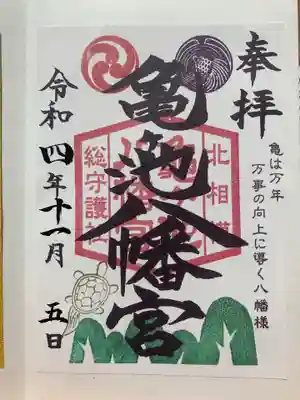 奉拝
亀は万年
万事の向上に導く八幡様
北相模
亀ヶ池八幡宮
亀ヶ池八幡宮
総守護社
令和四年十一月五日